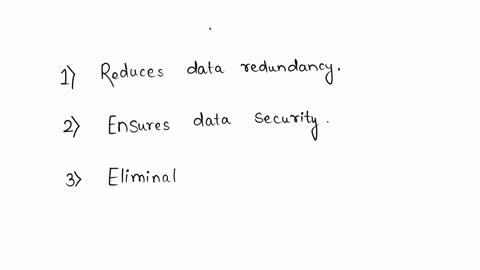 1) Reduces data redundancy.
2) Ensures data security.
3) Eliminal